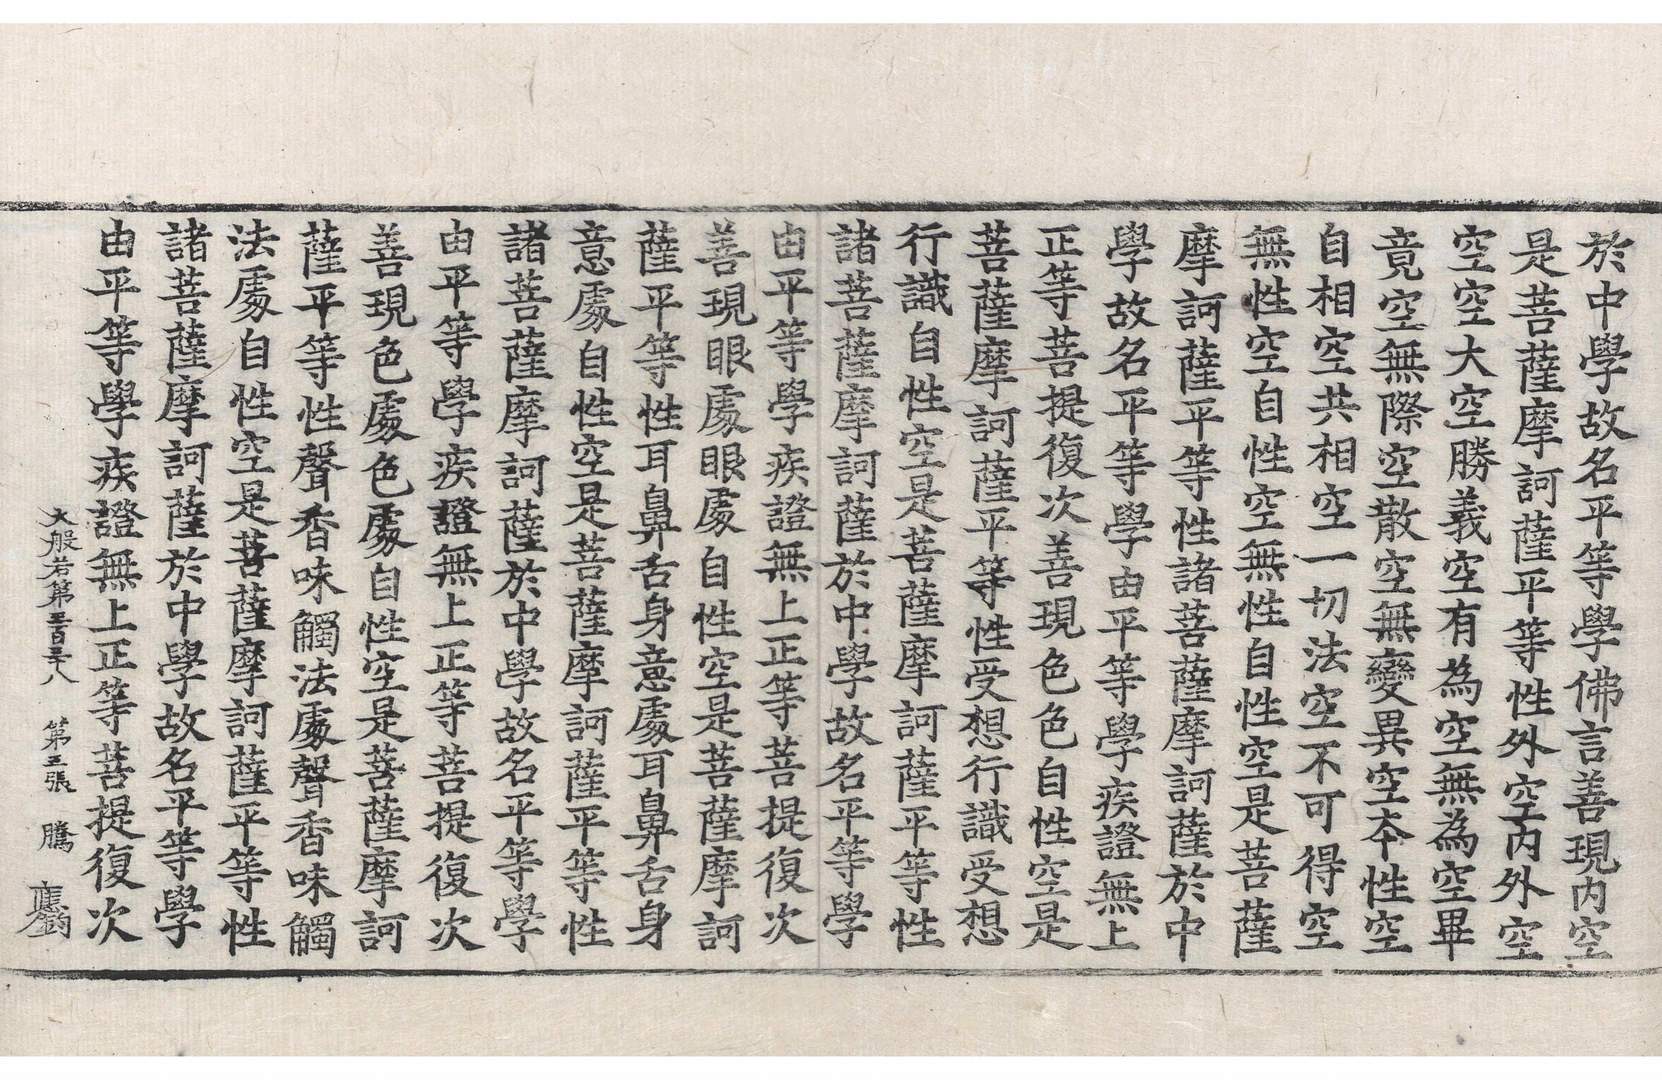 於中學故名平等學佛言善現内空
是菩薩摩訶薩平等性外空内外空
空空大空勝義空有為空無為空畢
竟空無際空散空無變異空本性空
自相空共相空一切法空不可得空
無性空自性空無性自性空是菩薩
摩訶薩平等性諸菩薩摩訶薩於中
學故名平等學由平等學疾證無上
正等菩提復次善現色色自性空是
菩薩摩訶薩平等性受想行識受想
行識自性空是菩薩摩訶薩平等性
諸菩薩摩訶薩於中學故名平等學
由平等學疾證無上正等菩提復次
善現眼處眼處自性空是菩薩摩訶
薩平等性耳鼻舌身意處耳鼻舌身
意處自性空是菩薩摩訶薩平等性
諸菩薩摩訶薩於中學故名平等學
由平等學疾證無上正等菩提復次
善現色處色處自性空是菩薩摩訶
薩平等性聲香味觸法處聲香味觸
法處自性空是菩薩摩訶薩平等性
諸菩薩摩訶薩於中學故名平等學
由平等學疾證無上正等菩提復次
大般若第五百三十八　第五張　騰　應鈞